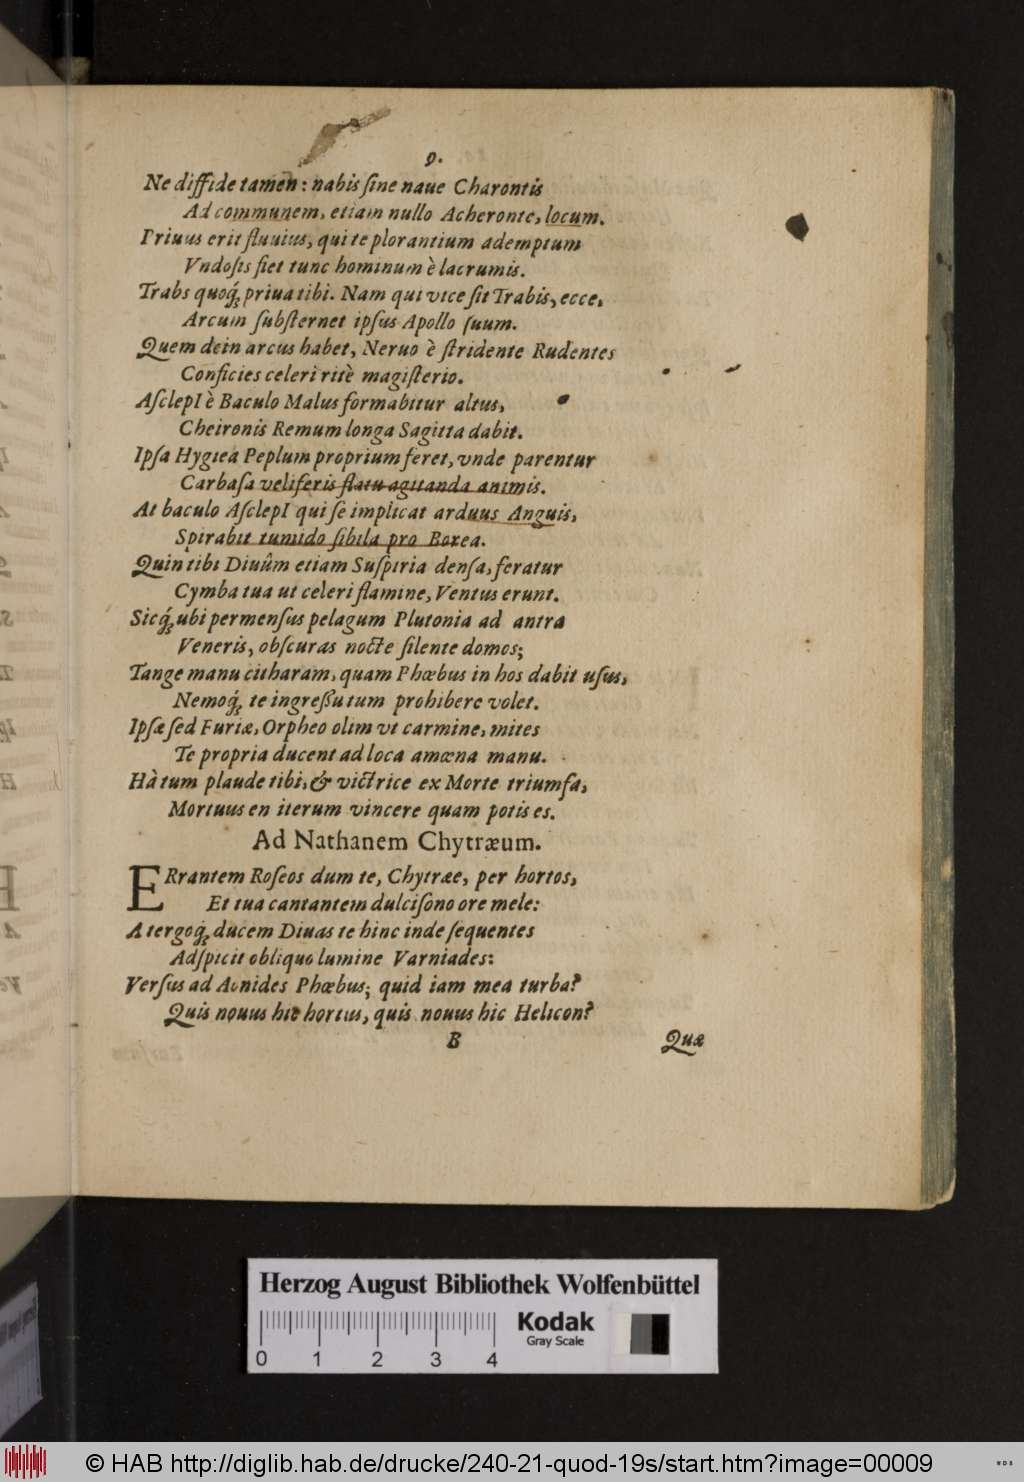 9.
Ne diffide tamen: nabis sine naue Charontis
Ad communem, etiam nullo Acheronte, locum.
Priuus erit fluuius, qui te plorantium ademptum
Vndosis fiet tunc hominum è lacrumis.
Trabs quoq́; priua tibi. Nam qui vice sit Trabis, ecce,
Arcum substernet ipsus Apollo suum.
Quem dein arcus habet, Neruo è stridente Rudentes
Conficies celeri ritè magisterio.
AsclepI è Baculo Malus formabitur altus,
Cheironis Remum longa Sagitta dabit.
Ipsa Hygiea Peplum proprium feret, vnde parentur
Carbasa veliferis flatu agitanda animis.
At baculo AsclepI qui se implicat arduus Anguis,
Spirabit tumido sibila pro Borea.
Quin tibi Diuûm etiam Suspiria densa, feratur
Cymba tua ut celeri flamine, Ventus erunt.
Sicq́; ubi permensus pelagum Plutonia ad antra
Veneris, obscuras nocte silente domos;
Tange manu citharam, quam Phœbus in hos dabit usus,
Nemoq́; te ingressu tum prohibere volet.
Ipsæ sed Furiæ, Orpheo olim vt carmine, mites
Te propria ducent ad loca amœna manu.
Hà tum plaude tibi, & victrice ex Morte triumfa,
Mortuus en iterum vincere quam potis es.
Ad Nathanem Chytræum.
ERrantem Roseos dum te, Chytræe, per hortos,
Et tua cantantem dulcisono ore mele:
A tergoq́; ducem Diuas te hinc inde sequentes
Adspicit obliquo lumine Varniades:
Versus ad Aonides Phœbus; quid iam mea turba?
Quis nouus hic hortus, quis nouus hic Helicon?
B Quæ
Herzog August Bibliothek Wolfenbüttel
Kodak
Gray Scale
0 1 2 3 4
© HAB http://diglib.hab.de/drucke/240-21-quod-19s/start.htm?image=00009